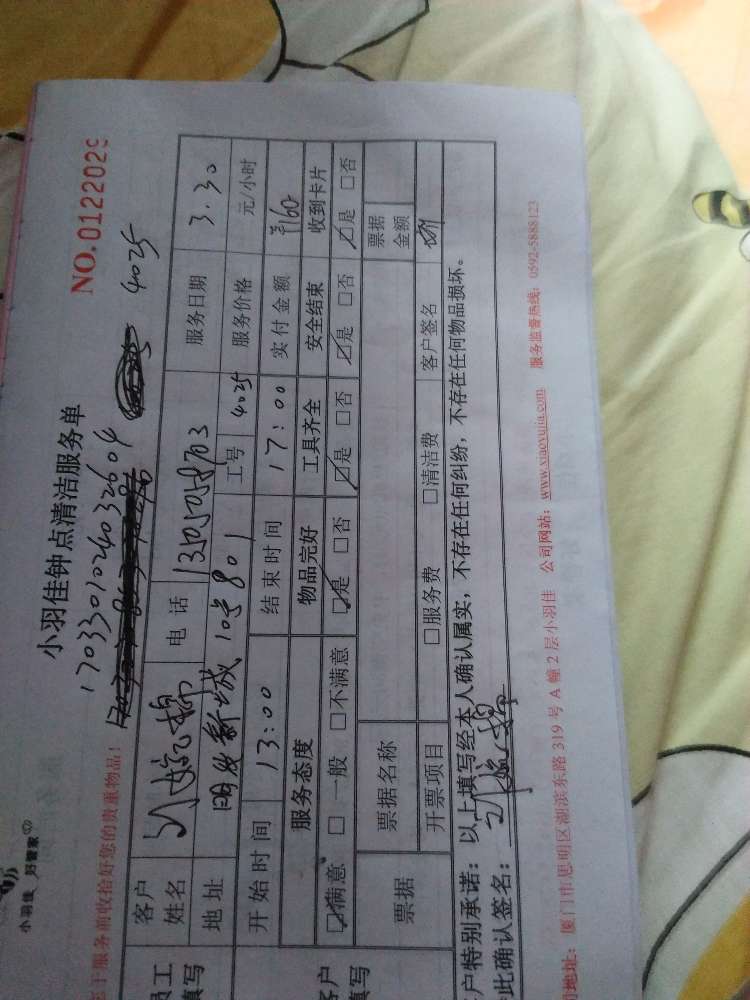 小羽佳 好管家
NO.0122029
小羽佳钟点清洁服务单
17033010240032604 4025
于服务前收拾好您的贵重物品！
员工
填写
客户
姓名
电话
服务日期 3.30
地址 10 801 工号 4025 服务价格 元/小时
开始时间 13:00 结束时间 17:00 实付金额 ¥160
客户
填写
服务态度 物品完好 工具齐全 安全结束 收到卡片
☑满意 □一般 □不满意 ☑是 □否 ☑是 □否 ☑是 □否 ☑是 □否
票据 票据名称 票据
金额
开票项目 □服务费 □清洁费 客户签名
户特别承诺：以上填写经本人确认属实，不存在任何纠纷，不存在任何物品损坏。
此确认签名：
地址：厦门市思明区湖滨东路319号A幢2层小羽佳 公司网站：www.xiaoyujia.com 服务监督热线：0592-5888123